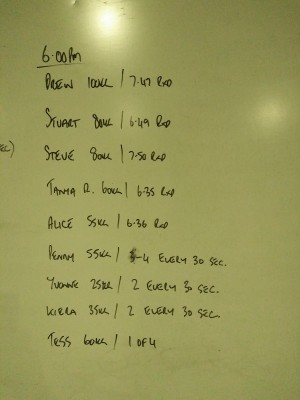 EC)
6:00PM
DREW 100KG / 7.47 RXD
STUART 80KG / 6.49 RXD
STEVE 80KG / 7.50 RXD
TANYA R. 60KG / 6.35 RXD
ALICE 55KG / 6.36 RXD
PENNY 55KG / 4 EVERY 30 SEC.
YVONNE 25KG / 2 EVERY 30 SEC.
KIRRA 35KG / 2 EVERY 30 SEC.
TESS 60KG / 1 OF 4